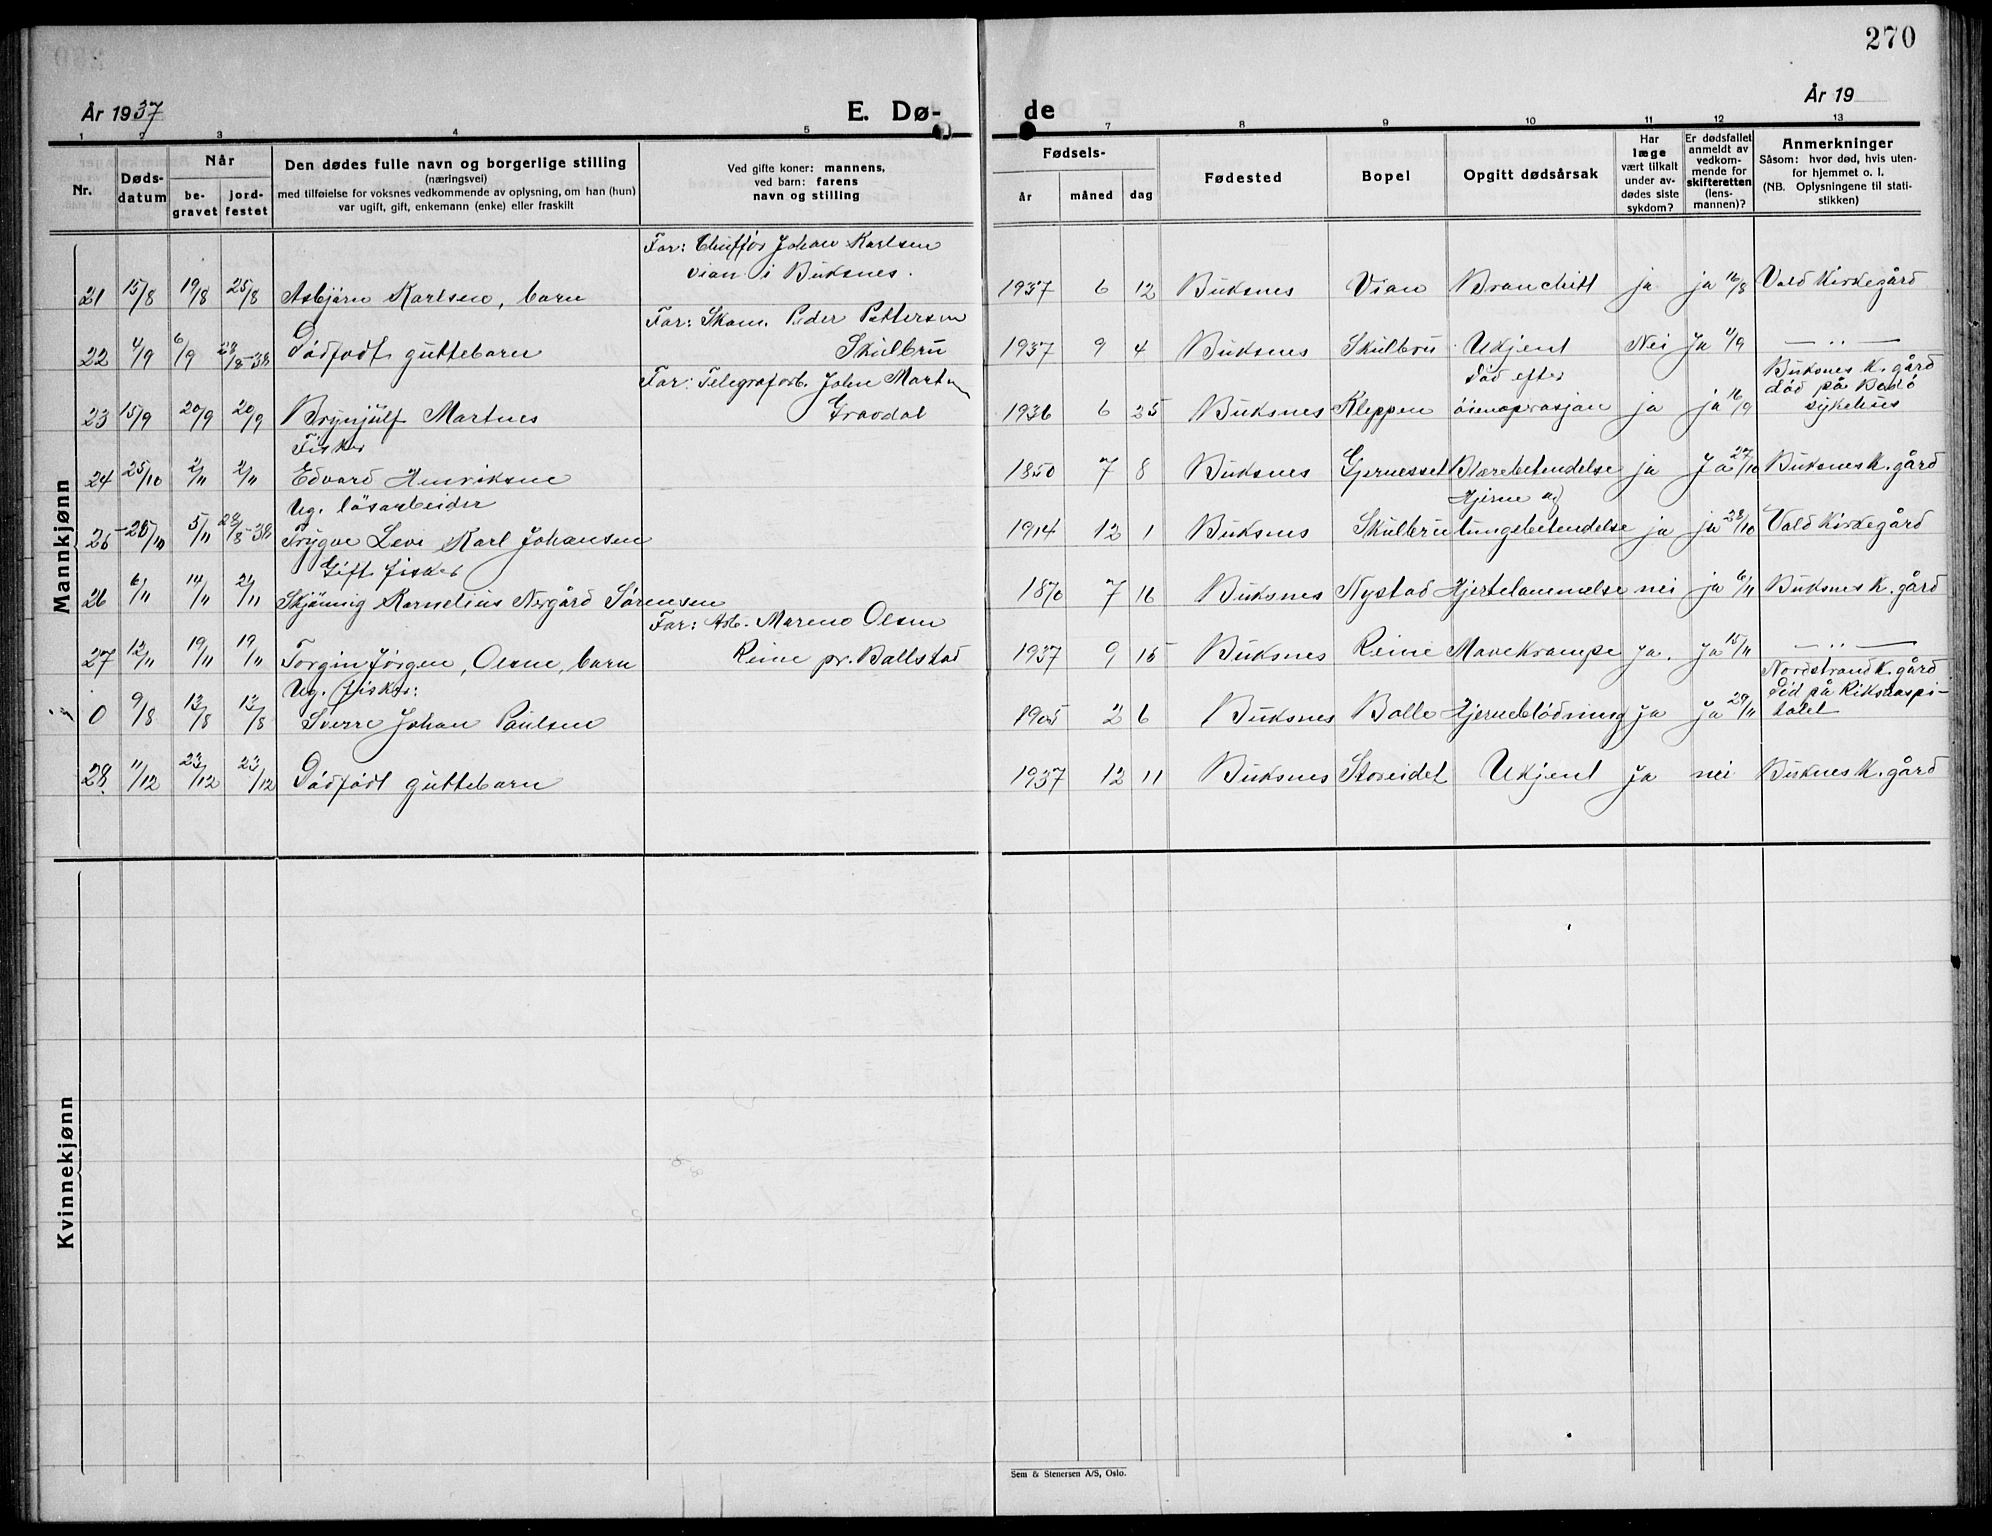 270
År 1937
E. Dø-
de
År 19
1 2 3 4 5 7 8 9 10 11 12 13
Nr.
Døds-
datum
Når
be-
gravet
jord-
festet
Den dødes fulle navn og borgerlige stilling
(næringsvei)
med tilføielse for voksnes vedkommende av oplysning, om han (hun)
var ugift, gift, enkemann (enke) eller fraskilt
Ved gifte koner: mannens,
ved barn: farens
navn og stilling
Fødsels-
år måned dag
Fødested
Bopel
Opgitt dødsårsak
Har
læge
vært tilkalt
under av-
dødes siste
sykdom?
Er dødsfallet
anmeldt av
vedkom-
mende for
skifteretten
(lens-
mannen)?
Anmerkninger
Såsom: hvor død, hvis uten-
for hjemmet o. l.
(NB. Oplysningene til stati-
stikken)
Mannkjønn
Far: Chufför Johan Karlsen
Vian i Buksnes.
21 15/8 19/8 25/8 Asbjørn Karlsen, barn 1937 6 12 Buksnes Vian Bronchitt ja ja 16/8 Vold Kirkegård
Far: Skom. Peder Pettersen
22 4/9 6/9 28/8-38 Dödfödt guttebarn Skulbru 1937 9 4 Buksnes Skulbru Ukjent Nei Ja 4/9 — „ —
Far: Telegrafarb. John Martn
död efter
Buksnes K. gård
död på Bodö
23 15/9 20/9 20/9 Brynjülf Martnes Gravdal 1936 6 25 Buksnes Kleppen öienoprasjon ja ja 16/9 sykehus
Fisker
24 25/10 2/11 2/11 Edvard Henriksen 1850 7 8 Buksnes Gjernesset Blærebetendelse ja Ja 27/10 Buksnes K. gård
Ug. lösarbeider
Hjerne og
25 25/10 5/11 28/8-38 Trygve Levi Karl Johansen 1914 12 1 Buksnes Skulbru lungebetendelse ja ja 28/10 Vold Kirkegård
Gift fisker
26 6/11 14/11 2/11 Skjönnig Kornelius Nergård Sörensen 1870 7 16 Buksnes Nystad Hjertelammelse nei ja 6/11 Buksnes K. gård
Far: Arb. Mareno Olsen
27 12/11 19/11 19/11 Torgin Jörgen, Olsen, barn Reine pr. Ballstad 1937 9 15 Buksnes Reine Mavekrampe ja. Ja 15/11 — „ —
Ug. fisker:
Nordstrand K. gård
Död på Rikshospi-
0 9/8 13/8 13/8 Sverre Johan Paulsen 1905 2 6 Buksnes Bolle Hjerneblödning Ja Ja 29/11 talet
28. 11/12 23/12 23/12 Dödfödt guttebarn 1937 12 11 Buksnes Storeidet Ukjent Ja nei Buknes K. gård
Kvinnekjønn
Sem & Stenersen A/S, Oslo.